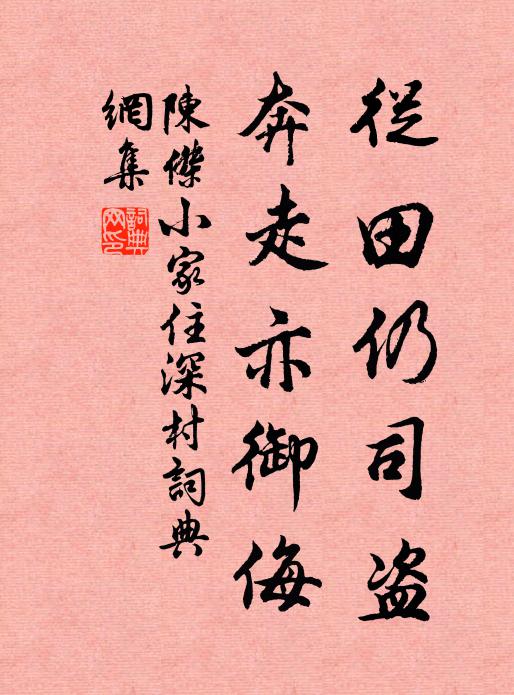 從田仍司盗
奔走亦御侮
陳傑小家住深村詞典
網集
詞典網印